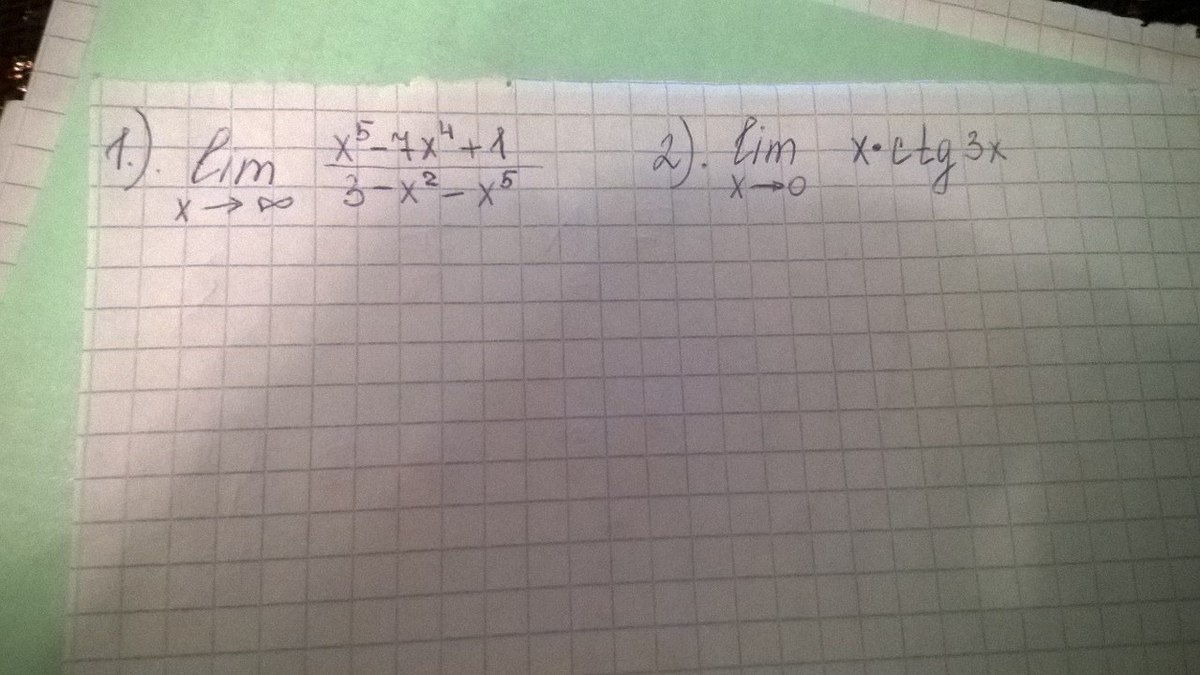 1.). lim x→∞ (x⁵-7x⁴+1)/(3-x²-x⁵)
2). lim x→0 x·ctg3x